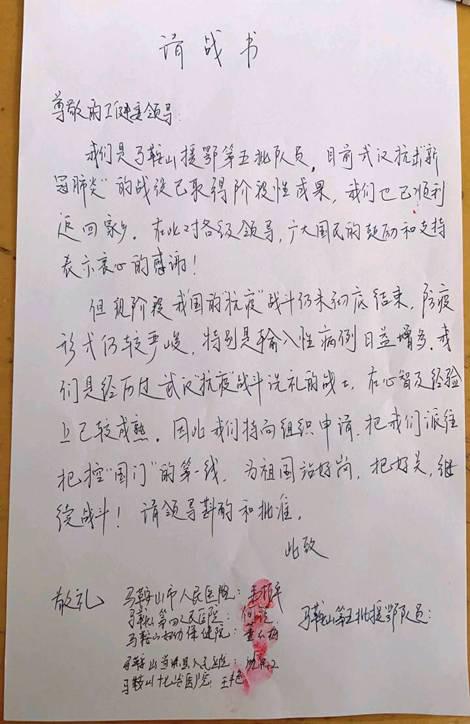 请战书
尊敬的卫健委领导:
我们是马鞍山援鄂第五批队员,目前武汉抗击"新
冠肺炎"的战役已取得阶段性成果,我们也已顺利
返回家乡。在此对各级领导,广大国民的鼓励和支持
表示衷心的感谢!
但现阶段我国的"抗疫"战斗仍未彻底结束,防疫
形式仍较严峻,特别是输入性病例日益增多。我
们是经历过武汉抗疫战斗洗礼的战士,在心智及经验
上已较成熟。因此我们特向组织申请,把我们派往
把控"国门"的第一线,为祖国站好岗,把好关,继
续战斗!请领导斟酌和批准。
此致
敬礼
马鞍山第五批援鄂队员:
马鞍山市人民医院:
马鞍山第四人民医院:
马鞍山妇幼保健院:
马鞍山当涂县人民医院:
马鞍山十七冶医院:王艳